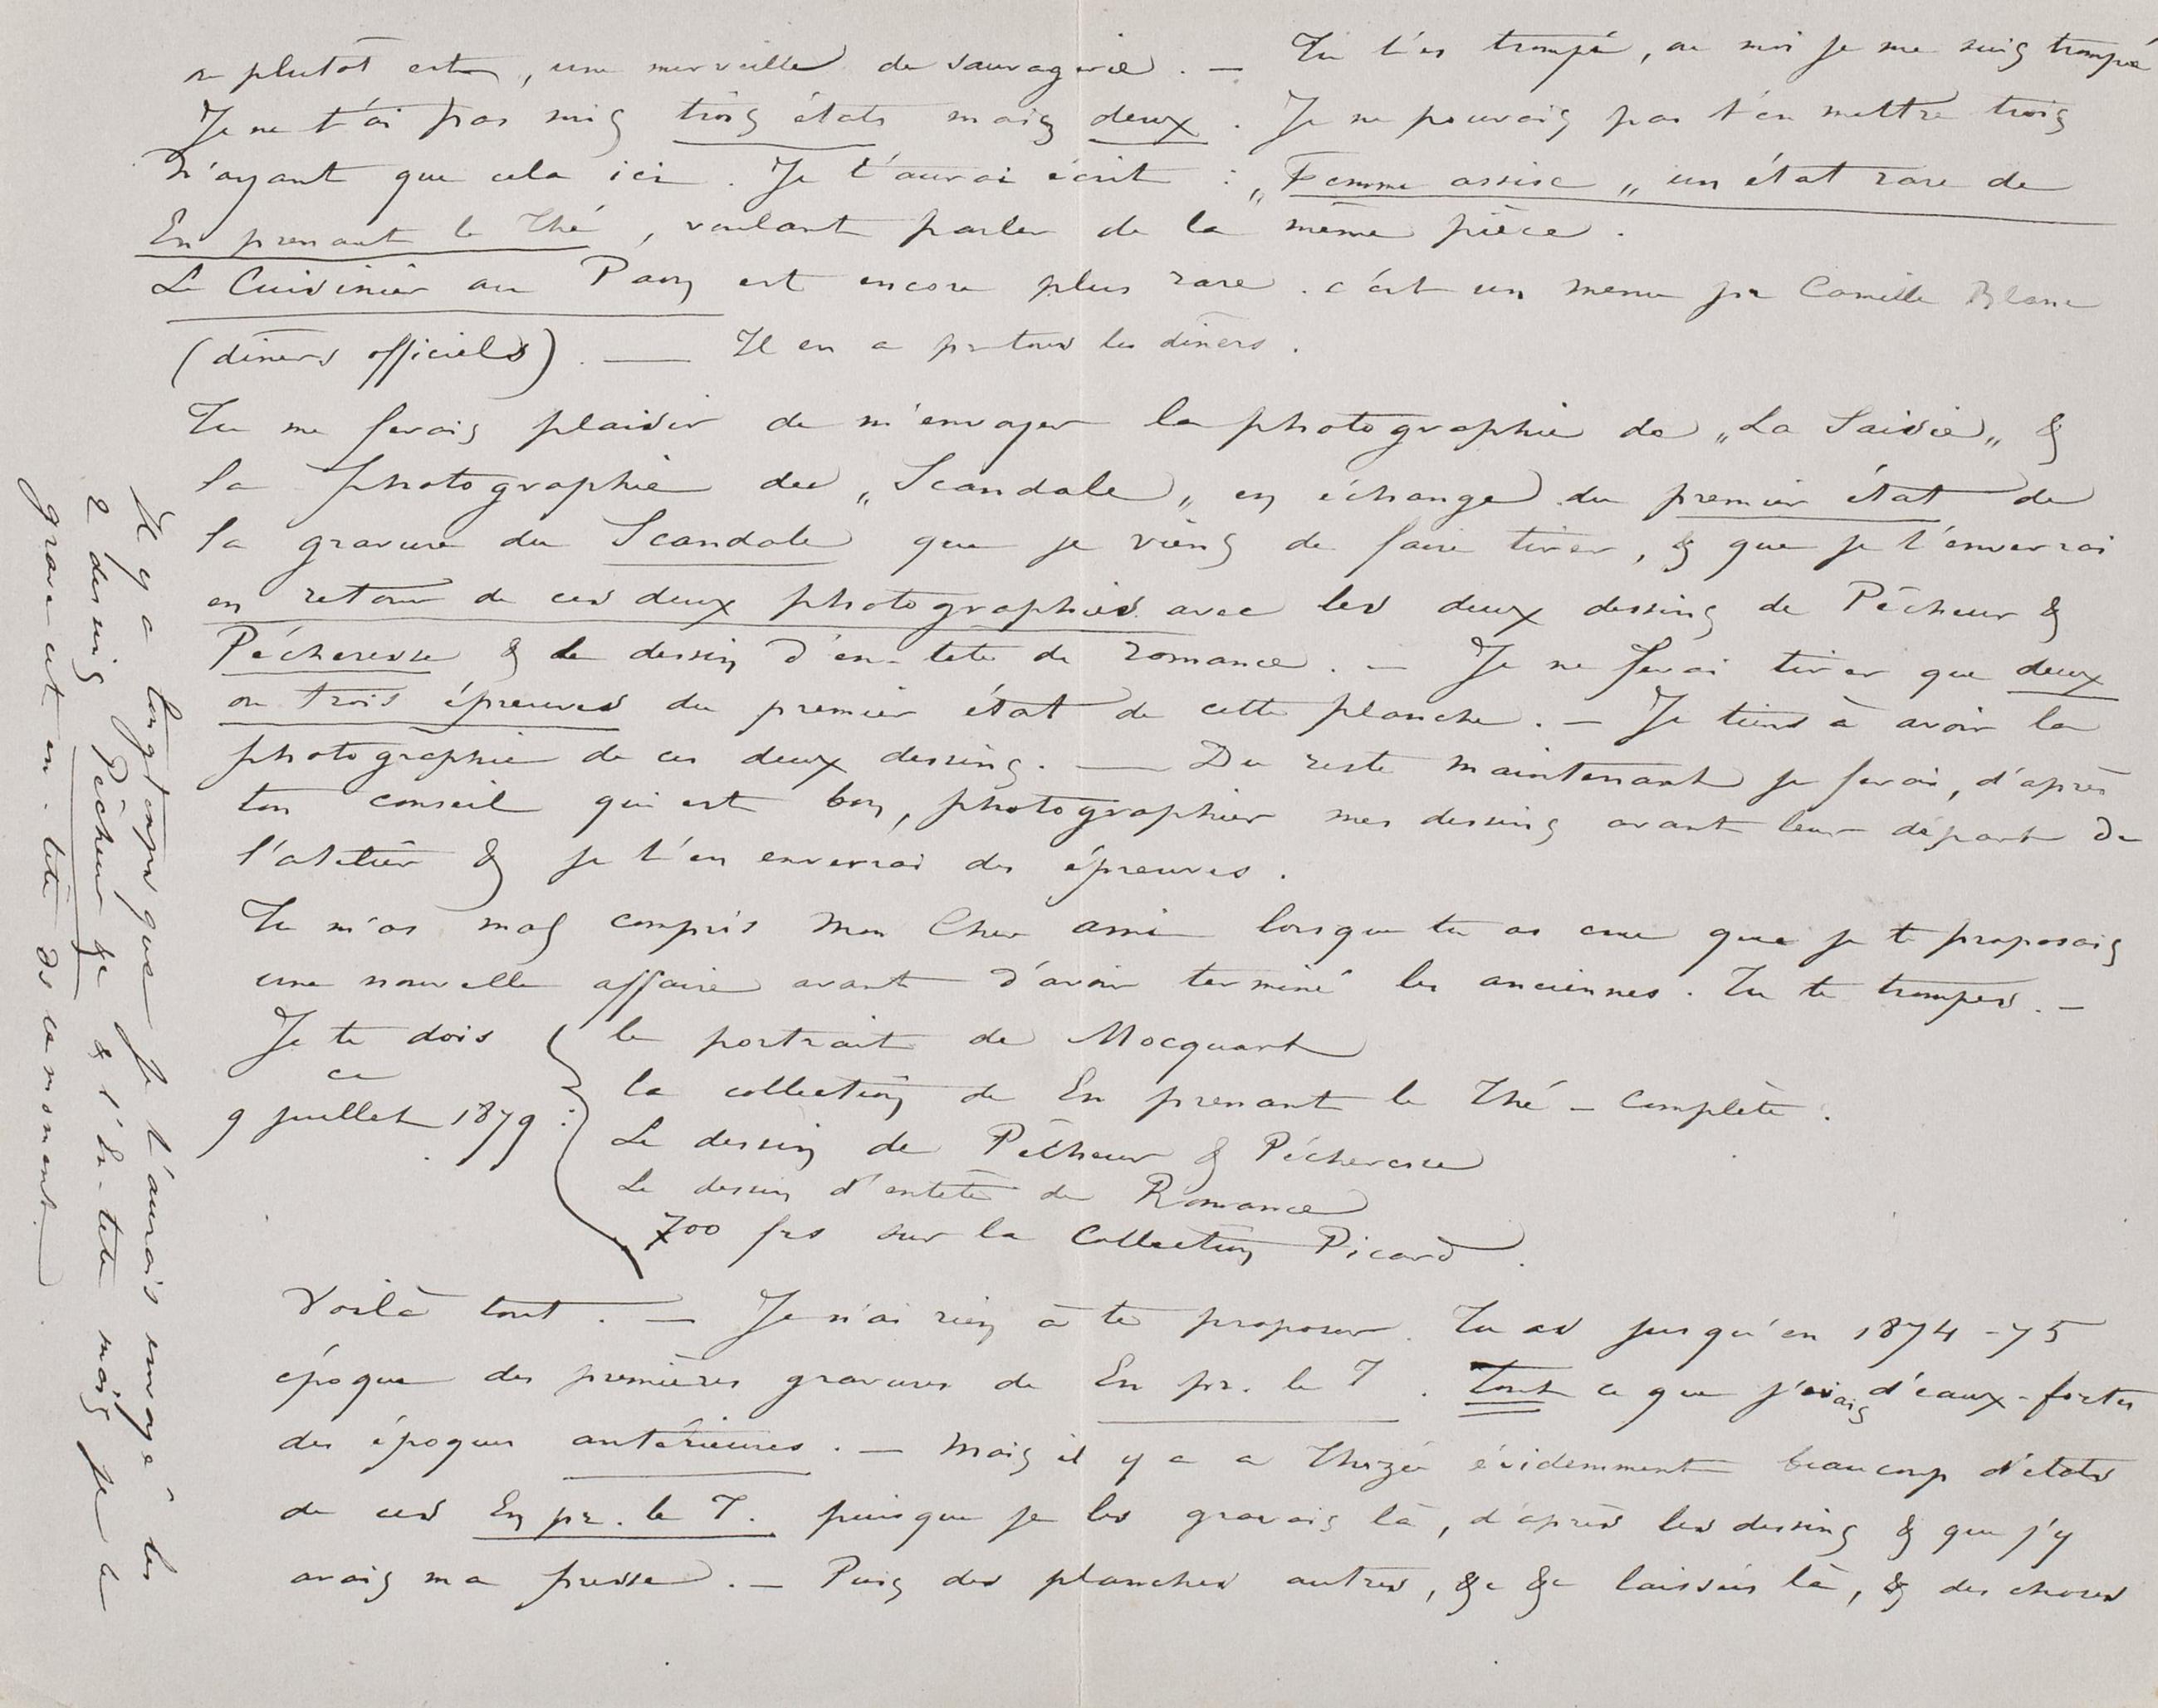 ou plutôt este, une merveille de sauvagerie. — Tu t'es trompé, ou moi je me suis trompé
Je ne t'ai pas mis trois états mais deux. Je ne pouvais pas t'en mettre trois
N'ayant que cela ici. Je t'aurai écrit : „Femme assise„ un état rare de
En prenant le Thé, voulant parler de la même pièce.
Le Cuisinier au Paon est encore plus rare. c'est un menu pr Camille Blanc
(dîners officiels). — Il en a pr tous les dîners.
Tu me ferais plaisir de m'envoyer la photographie de „La Saisie„ &
la photographie du „Scandale„ en échange du premier état de
la gravure du Scandale que je viens de faire tirer, & que je t'enverrai
en retour de ces deux photographies avec les deux dessins de Pêcheur &
Pécheresse & le dessin d'en-tete de romance. — Je ne ferai tirer que deux
ou trois épreuves du premier état de cette planche. — Je tiens à avoir la
photographie de ces deux dessins. — Du reste maintenant je ferai, d'après
ton conseil qui est bon, photographier mes dessins avant leur départ de
l'atelier & je t'en enverrai des épreuves.
Tu m'as mal compris mon Cher ami lorsque tu as cru que je te proposais
une nouvelle affaire avant d'avoir terminé les anciennes. Tu te trompes. —
Je te dois
ce
9 juillet 1879 :
le portrait de Mocquart
la collection de En prenant le Thé — Complète.
Le dessin de Pêcheur & Pécheresse
Le dessin d'entête de Romance
700 frs sur la Collection Picard.
Voilà tout. — Je n'ai rien à te proposer. Tu as jusqu'en 1874-75
époque des premières gravures de En pr. le T. Tout ce que j'avais d'eaux-fortes
des époques antérieures. — Mais il y a a Thozée évidemment beaucoup d'états
de ces En pr. le T. puisque je les gravais là, d'après les dessins & que j'y
avais ma presse. — Puis des planches autres, &c &c laissées là, & des choses
Il y a longtemps que je t'aurais envoyé les
2 dessins Pêcheur &c & l'En-tete mais je le
grave cet en-tête en ce moment.